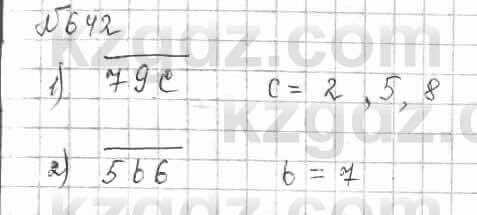 №642
1) 79c c = 2, 5, 8
2) 5b6 b = 7
kzgdz.com
kzgdz.com